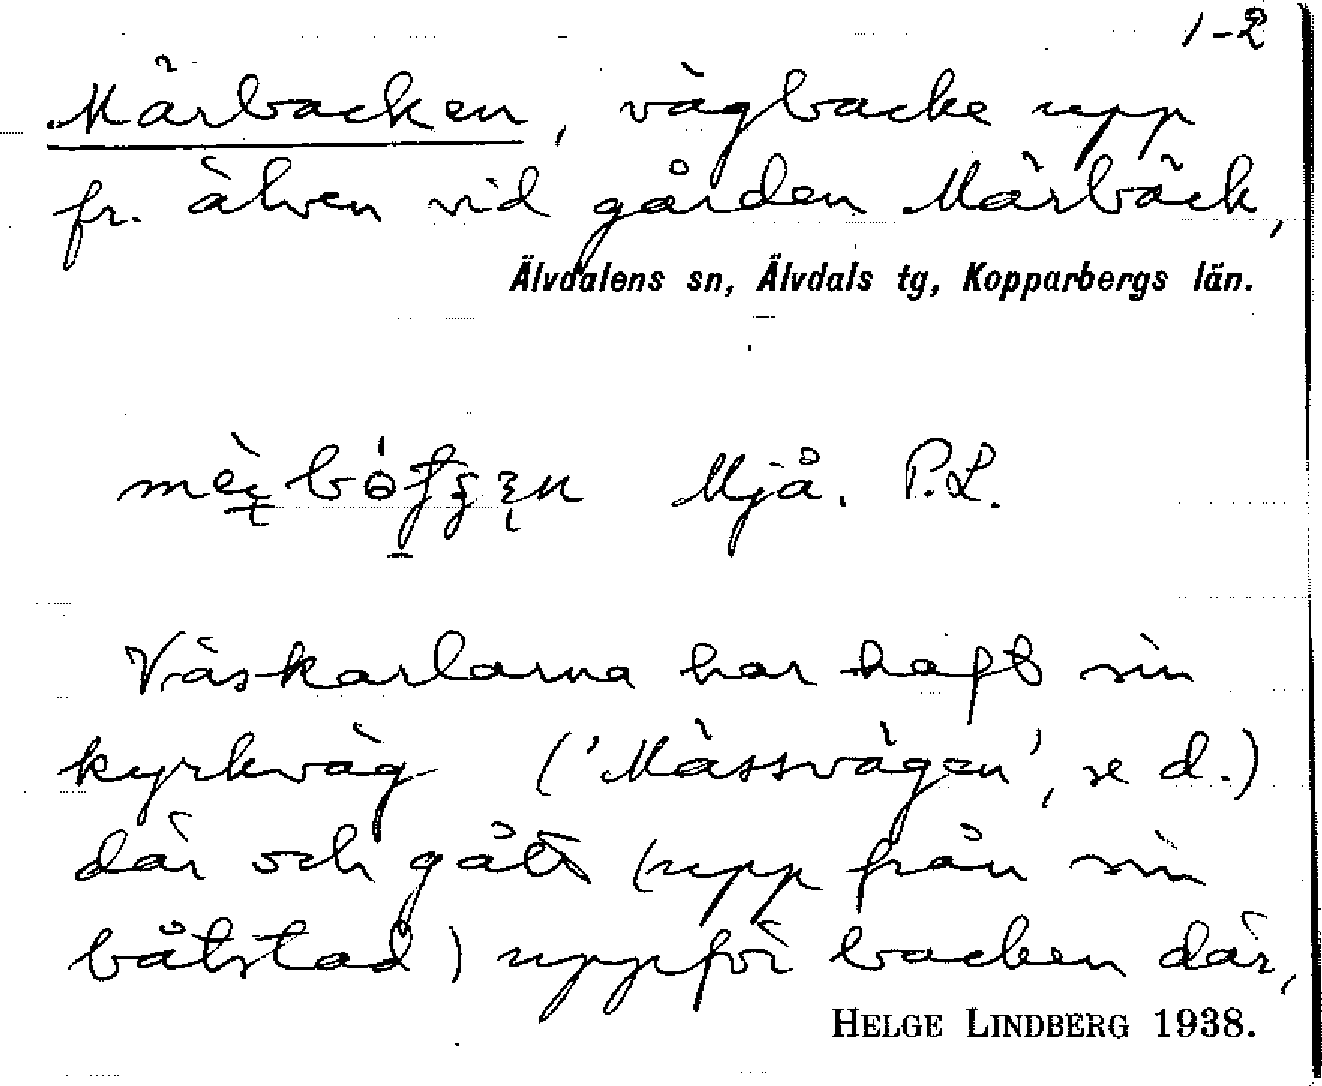 1-2
Märbacken, vägbacke upp
fr. älven vid gården Märbäck,
Älvdalens sn, Älvdals tg, Kopparbergs län.
Mjå. P.L.
Väskarlarna har haft sin
kyrkväg ('Mässvägen', se d.)
där och gått (upp från sin
båtstad) uppför backen där,
HELGE LINDBERG 1938.